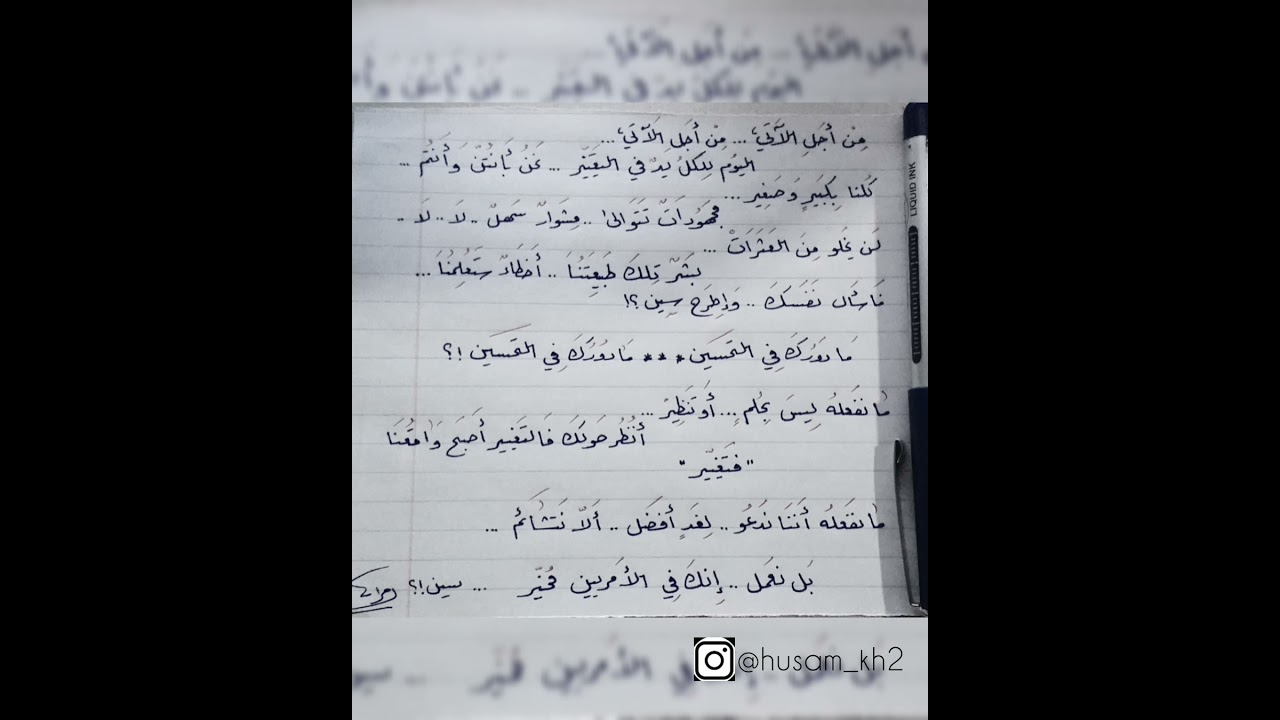 مِنْ أَجَلِ الآتي، ... مِنْ أَجَلِ الآتي، ...
اليَوم لِلكلُ يَدٌ في التَغيِّير ... نَحنُ بَأنتُنَّ وَأَنتُم ...
كُلنا بِكَبيرٍ وَصَغِير ...
مَجهَودَاتٌ تَتَوالىٰ .. مِشوارٌ سَهلٌ .. لَا .. لَا ..
لَن يَخلو مِنَ العَثَرَاتْ ...
بشَرٌ تِلكَ طَبيعَتُنَا .. أَخطَاءٌ سَتُعلِمُنَا ...
فَاسأَل نَفسَكَ .. وَاِطرَح سِين ؟!
مَا دَورُكَ فِي التَحسِين *** مَا دَورُكَ فِي التَحسِين ؟!
مَا نَفعَلهُ لَيسَ بِحُلمٍ ... أَو تَنظِير ...
أُنظُر حَولَكَ فَالتَغيير أَصبَح وَاقِعُنَا
"فَتَغيّير"
مَا نَفعَلهُ أَنَنا نَدعُو .. لِغَدٍ أَفضَل .. أَلَّا نَتَشَائم ...
بَل نَعمَل .. إِنكَ فِي الأَمرِين مُخيّر ... سين ؟!
LIQUID INK
@husam_kh2